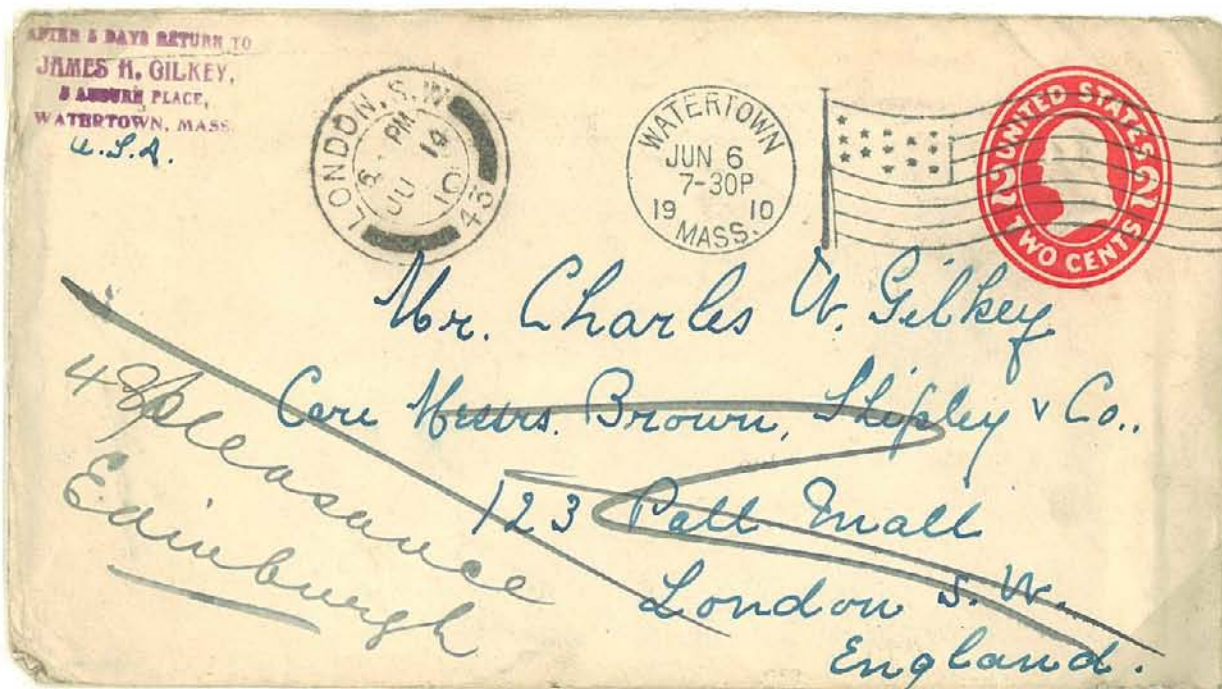 AFTER 5 DAYS RETURN TO
JAMES H. GILKEY,
5 AUBURN PLACE,
WATERTOWN, MASS.
U.S.A.
LONDON, S.W.
PM
JU 14
10
43
WATERTOWN
JUN 6
7-30P
19 10
MASS.
UNITED STATES
2 2
TWO CENTS
Mr. Charles W. Gilkey
Care Messrs. Brown, Shipley & Co.,
123 Pall Mall
London S. W.
England.
48 Pleasance
Edinburgh